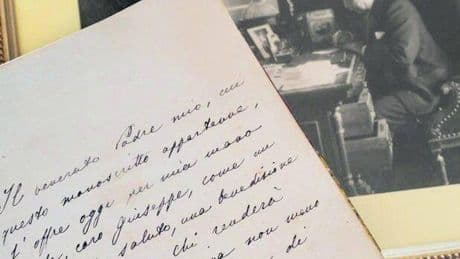 Il venerato Padre mio, cui
questo manoscritto appartenne,
t'offre oggi per mia mano
caro Giuseppe, come un
saluto, una benedizione
chi renderà
non meno
di